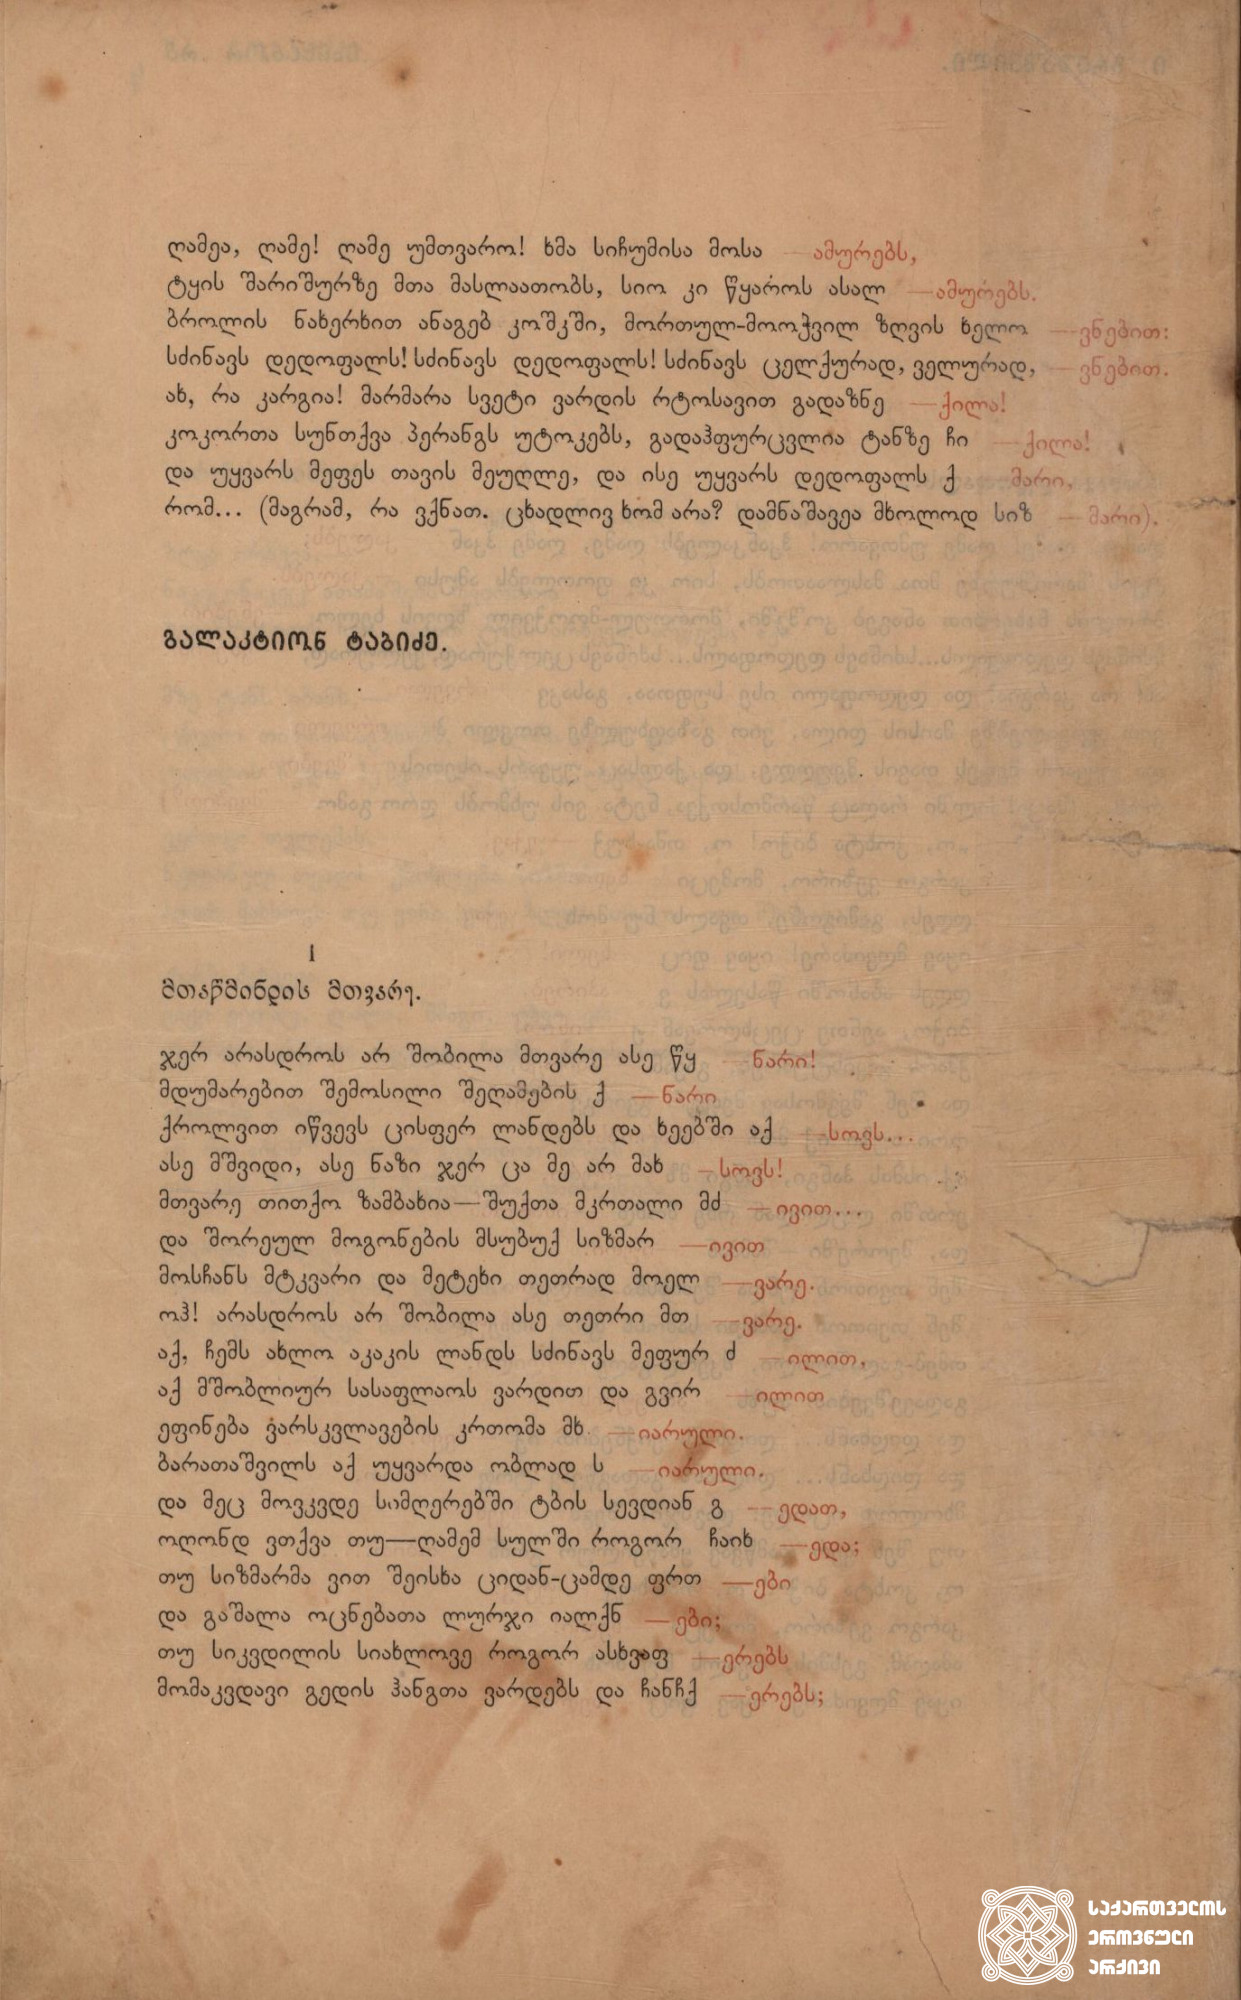 ღამეა, ღამე! ღამე უმთვარო! ხმა სიჩუმისა მოსა —ამურებს,
ტყის შარიშურზე მთა მასლაათობს, სიო კი წყაროს ასალ —ამურებს.
ბროლის ნახერხით ანაგებ კოშკში, მორთულ-მოოჭვილ ზღვის ხელო —ვნებით:
სძინავს დედოფალს! სძინავს დედოფალს! სძინავს ცელქურად, ველურად, —ვნებით.
ახ, რა კარგია! მარმარა სვეტი ვარდის რტოსავით გადაზნე —ქილა!
კოკორთა სუნთქვა პერანგს უტოკებს, გადაჰფურცვლია ტანზე ჩი —ქილა!
და უყვარს მეფეს თავის მეუღლე, და ისე უყვარს დედოფალს ქ —მარი,
რომ... (მაგრამ, რა ვქნათ. ცხადლივ ხომ არა? დამნაშავეა მხოლოდ სიზ —მარი).
გალაკტიონ ტაბიძე.
I
მთაწმინდის მთვარე.
ჯერ არასდროს არ შობილა მთვარე ასე წყ —ნარი!
მდუმარებით შემოსილი შეღამების ქ —ნარი
ქროლვით იწვევს ცისფერ ლანდებს და ხეებში აქ —სოვს...
ასე მშვიდი, ასე ნაზი ჯერ ცა მე არ მახ —სოვს!
მთვარე თითქო ზამბახია—შუქთა მკრთალი მძ —ივით...
და შორეულ მოგონების მსუბუქ სიზმარ —ივით
მოსჩანს მტკვარი და მეტეხი თეთრად მოელ —ვარე.
ოჰ! არასდროს არ შობილა ასე თეთრი მთ —ვარე.
აქ, ჩემს ახლო აკაკის ლანდს სძინავს მეფურ ძ —ილით,
აქ მშობლიურ სასაფლაოს ვარდით და გვირ —ილით
ეფინება ვარსკვლავების კრთომა მხ —იარული.
ბარათაშვილს აქ უყვარდა ობლად ს —იარული.
და მეც მოვკვდე სიმღერებში ტბის სევდიან გ —ედათ,
ოღონდ ვთქვა თუ—ღამემ სულში როგორ ჩაიხ —ედა;
თუ სიზმარმა ვით შეისხა ციდან-ცამდე ფრთ —ები
და გაშალა ოცნებათა ლურჯი იალქნ —ები;
თუ სიკვდილის სიახლოვე როგორ ასხვაფ —ერებს
მომაკვდავი გედის ჰანგთა ვარდებს და ჩანჩქ —ერებს;
საქართველოს
ეროვნული
არქივი